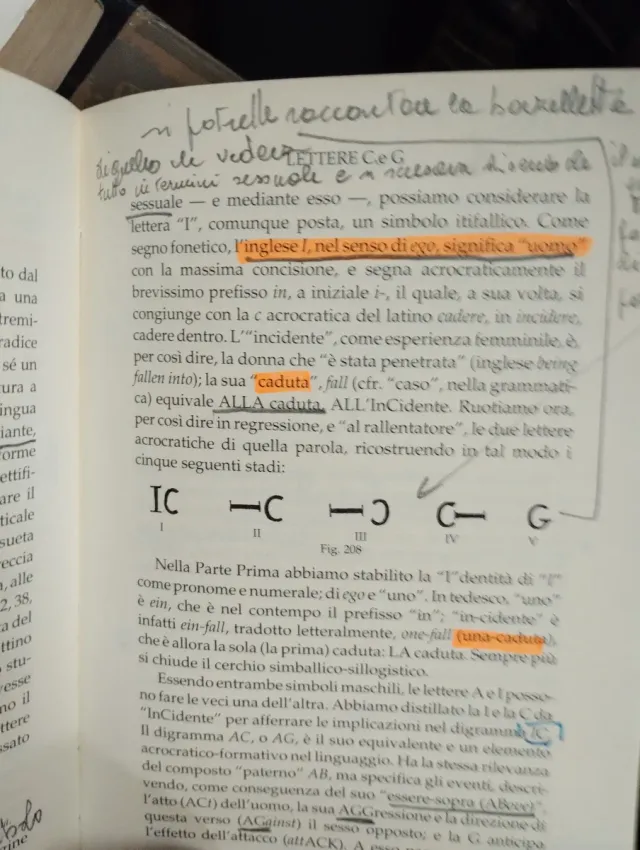 si potrebbe raccontare la barzelletta
di quello che vedeva
LETTERE C e G
tutto in termini sessuali e
sessuale — e mediante esso —, possiamo considerare la
lettera "I", comunque posta, un simbolo itifallico. Come
segno fonetico, l'inglese I, nel senso di ego, significa "uomo"
con la massima concisione, e segna acrocraticamente il
brevissimo prefisso in, a iniziale i-, il quale, a sua volta, si
congiunge con la c acrocratica del latino cadere, in incidere,
cadere dentro. L'"incidente", come esperienza femminile, è,
per così dire, la donna che "è stata penetrata" (inglese being
fallen into); la sua "caduta", fall (cfr. "caso", nella grammati-
ca) equivale ALLA caduta, ALL'InCidente. Ruotiamo ora,
per così dire in regressione, e "al rallentatore", le due lettere
acrocratiche di quella parola, ricostruendo in tal modo i
cinque seguenti stadi:
IC
I
II
III
IV
G
V
Fig. 208
Nella Parte Prima abbiamo stabilito la "I"dentità di "I"
come pronome e numerale; di ego e "uno". In tedesco, "uno"
è ein, che è nel contempo il prefisso "in"; "in-cidente" è
infatti ein-fall, tradotto letteralmente, one-fall (una-caduta),
che è allora la sola (la prima) caduta: LA caduta. Sempre più
si chiude il cerchio simballico-sillogistico.
Essendo entrambe simboli maschili, le lettere A e I posso-
no fare le veci una dell'altra. Abbiamo distillato la I e la C da
"InCidente" per afferrare le implicazioni nel digramma IC.
Il digramma AC, o AG, è il suo equivalente e un elemento
acrocratico-formativo nel linguaggio. Ha la stessa rilevanza
del composto "paterno" AB, ma specifica gli eventi, descri-
vendo, come conseguenza del suo "essere-sopra (ABove)",
l'atto (ACt) dell'uomo, la sua AGGressione e la direzione di
questa verso (AGainst) il sesso opposto; e la G anticipa
l'effetto dell'attacco (attACK). A
to dal
a una
tremi-
radice
sé un
tura a
ingua
iante,
forme
ettifi-
are il
ticale
sueta
eccia
, alle
2, 38,
a del
ttino
stu-
esse
no il
ttere
ssato